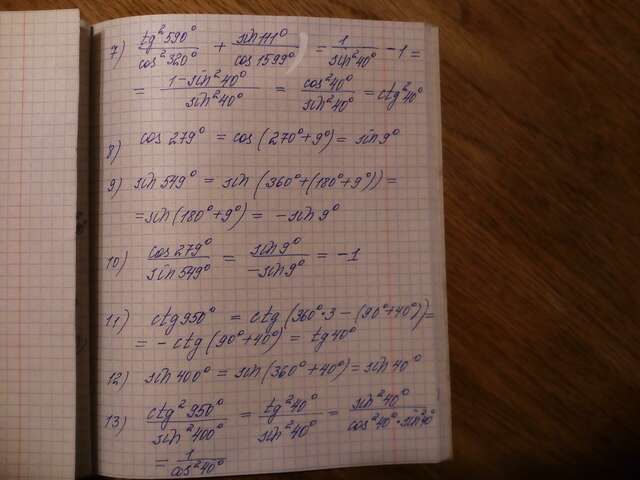 7) tg²590°/cos²320° + sin111°/cos1599° = 1/sin²40° - 1 =
= (1 - sin²40°)/sin²40° = cos²40°/sin²40° = ctg²40°
8) cos 279° = cos(270°+9°) = sin 9°
9) sin 549° = sin(360°+(180°+9°)) =
= sin(180°+9°) = - sin 9°
10) cos 279°/sin 549° = sin 9°/-sin 9° = -1
11) ctg 950° = ctg(360°·3 - (90°+40°)) =
= - ctg(90°+40°) = tg 40°
12) sin 400° = sin(360°+40°) = sin 40°
13) ctg²950°/sin²400° = tg²40°/sin²40° = sin²40°/cos²40°·sin²40°
= 1/cos²40°